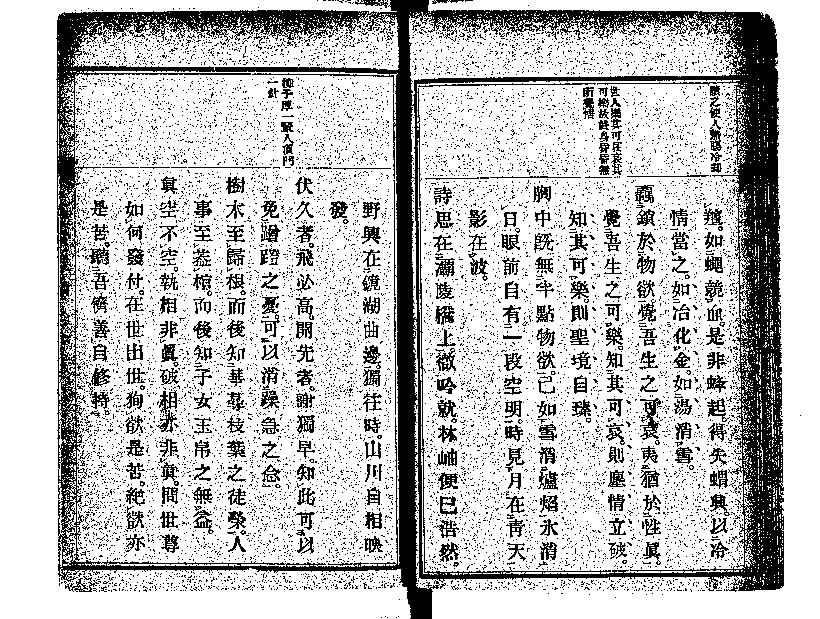 羶。如蠅競血。是非蜂起。得失蝟興。以冷
情當之。如冶化金。如湯消雪。
羈鎖於物欲。覺吾生之可哀。夷猶於性眞。
覺吾生之可樂。知其可哀。則塵情立破。
知其可樂。則聖境自臻。
胸中既無半點物欲。已如雪消爐焰氷消
日。眼前自有一段空明。時見月在靑天
影在波。
詩思在灞陵橋上。微吟就。林岫便已浩然。
野興在鏡湖曲邊。獨往時。山川自相映
發。
伏久者。飛必高。開先者。謝獨早。知此。可以
免蹭蹬之憂。可以消躁急之念。
樹木至歸根。而後知華萼枝葉之徒榮。人
事至蓋棺。而後知子女玉帛之無益。
眞空不空。執相非眞。破相亦非眞。問世尊
如何發付。在世出世。徇欲是苦。絕欲亦
是苦。聽吾儕善自修持。